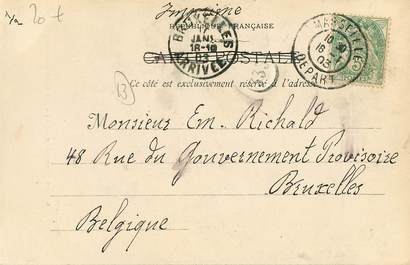 20 +
Imprimé
RÉPUBLIQUE FRANÇAISE
BRUXELLES
17
JANV
18-19
03
ARRIVÉE
MARSEILLE
16
03
DÉPART
CARTE POSTALE
Ce côté est exclusivement réservé à l'adresse
13
Monsieur Em. Richald
48 Rue du Gouvernement Provisoire
Bruxelles
Belgique